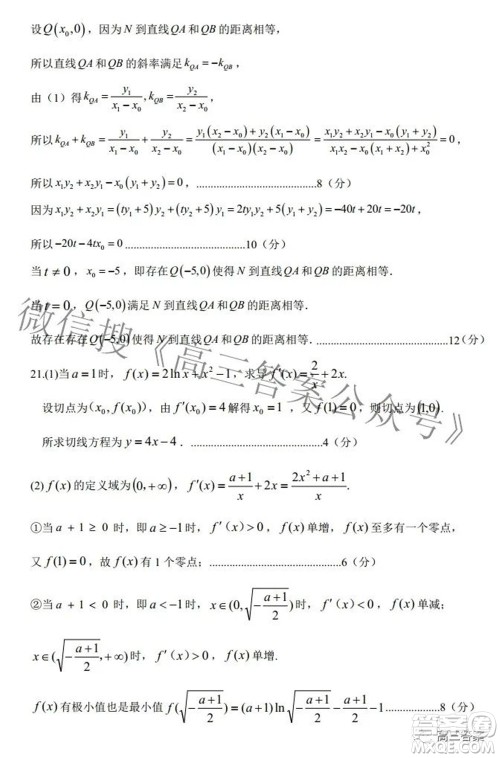 设Q(x₀,0)，因为 N 到直线QA 和 QB 的距离相等，
所以直线QA 和 QB 的斜率满足 k_QA = −k_QB，
由（1）得 k_QA = y₁/(x₁−x₀), k_QB = y₂/(x₂−x₀)
所以 k_QA + k_QB = y₁/(x₁−x₀) + y₂/(x₂−x₀) = (y₁(x₂−x₀)+y₂(x₁−x₀))/((x₁−x₀)(x₂−x₀)) = (x₁y₂+x₂y₁−x₀(y₁+y₂))/(x₁x₂−x₀(x₁+x₂)+x₀²) = 0，
所以 x₁y₂+x₂y₁−x₀(y₁+y₂)=0，..............................8（分）
因为 x₁y₂+x₂y₁=(ty₁+5)y₂+(ty₂+5)y₁=2ty₁y₂+5(y₁+y₂)=−40t+20t=−20t，
所以−20t−4tx₀=0..............................10（分）
当 t≠0，x₀=−5，即存在Q(−5,0)使得 N 到直线QA 和 QB 的距离相等.
当 t=0，Q(−5,0)满足 N 到直线QA 和 QB 的距离相等.
故存在存在Q(−5,0)使得 N 到直线QA 和 QB 的距离相等..............................12（分）
21.(1)当 a=1时，f(x)=2ln x+x²−1，求导 f′(x)=2/x+2x.
设切点为(x₀,f(x₀))，由 f′(x₀)=4 解得 x₀=1 ，又 f(1)=0，则切点为(1,0).
所求切线方程为 y=4x−4..............................4（分）
(2) f(x) 的定义域为(0,+∞)，f′(x)=(a+1)/x+2x=(2x²+a+1)/x.
①当 a+1≥0 时，即 a≥−1时，f′（x）>0，f(x) 单增，f(x) 至多有一个零点，
又 f(1)=0，故 f(x) 有 1 个零点；..............................6（分）
②当 a+1<0 时，即 a<−1时，x∈(0,√(−(a+1)/2))时，f′（x）<0，f(x) 单减；
x∈(√(−(a+1)/2),+∞)时，f′（x）>0，f(x) 单增.
f(x) 有极小值也是最小值 f(√(−(a+1)/2))=(a+1)ln√(−(a+1)/2)−(a+1)/2−1..............8（分）
微信搜《高三答案公众号》
高三答案